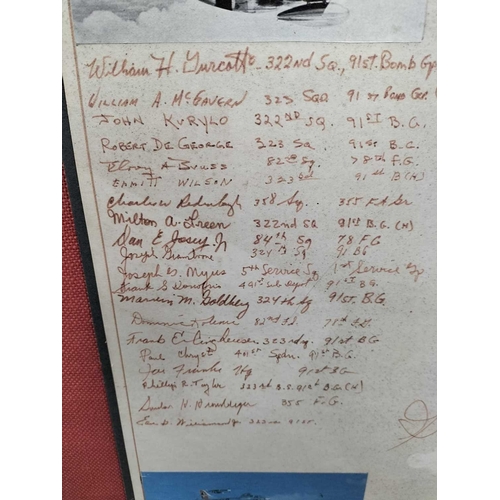 William H. Turcotte - 322nd Sq., 91st. Bomb Gp
WILLIAM A. McGAVERN 323 SQD 91 st Bomb Gr.
JOHN KURYLO 322ND SQ. 91ST B.G.
ROBERT DE GEORGE 323 SQ. 91st B.G.
A 82nd Sq. 78th F.G.
EMMITT WILSON 323rd 91st B(H)
Charles 358 Sq. 355
Milton A. Green 322nd SQ 91st B.G. (H)
Dan E. Josey Jr 84th Sq 78 FG
Joseph 324th Sq 91 BG
Joseph D. Myers 5th Service Sq 1st Service Gp
Frank S. Donofrio 441st Sub Depot 91st B.G.
Marvin M. Goldberg 324th Sq 91st. B.G.
Dominic 82nd 78th
Frank E. 323rdSq. 91st BG
Paul 441st Spdn. 91st B.G.
Joe Franks Hq 91st BG
Phillip R. Taylor 323rd B.S. 91st B.G. (H)
H. 355 F.G.
D. 322nd 91st.